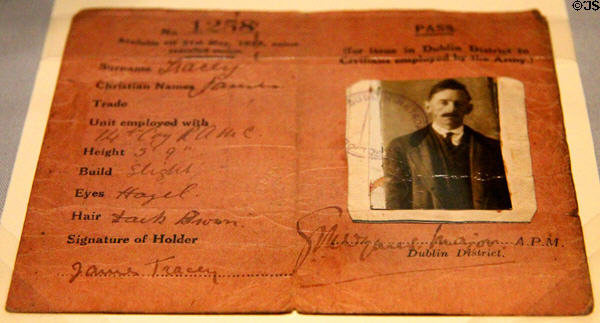 No 1258
Available till 31st May, 1922, unless
recalled earlier.
Surname Tracey
Christian Names James
Trade
Unit employed with
14th Coy R.A.M.C.
Height 5' 9"
Build Slight
Eyes Hazel
Hair Dark Brown
Signature of Holder
James Tracey
PASS
(for issue in Dublin District to
Civilians employed by the Army.)
Major A.P.M.
Dublin District.
© JS